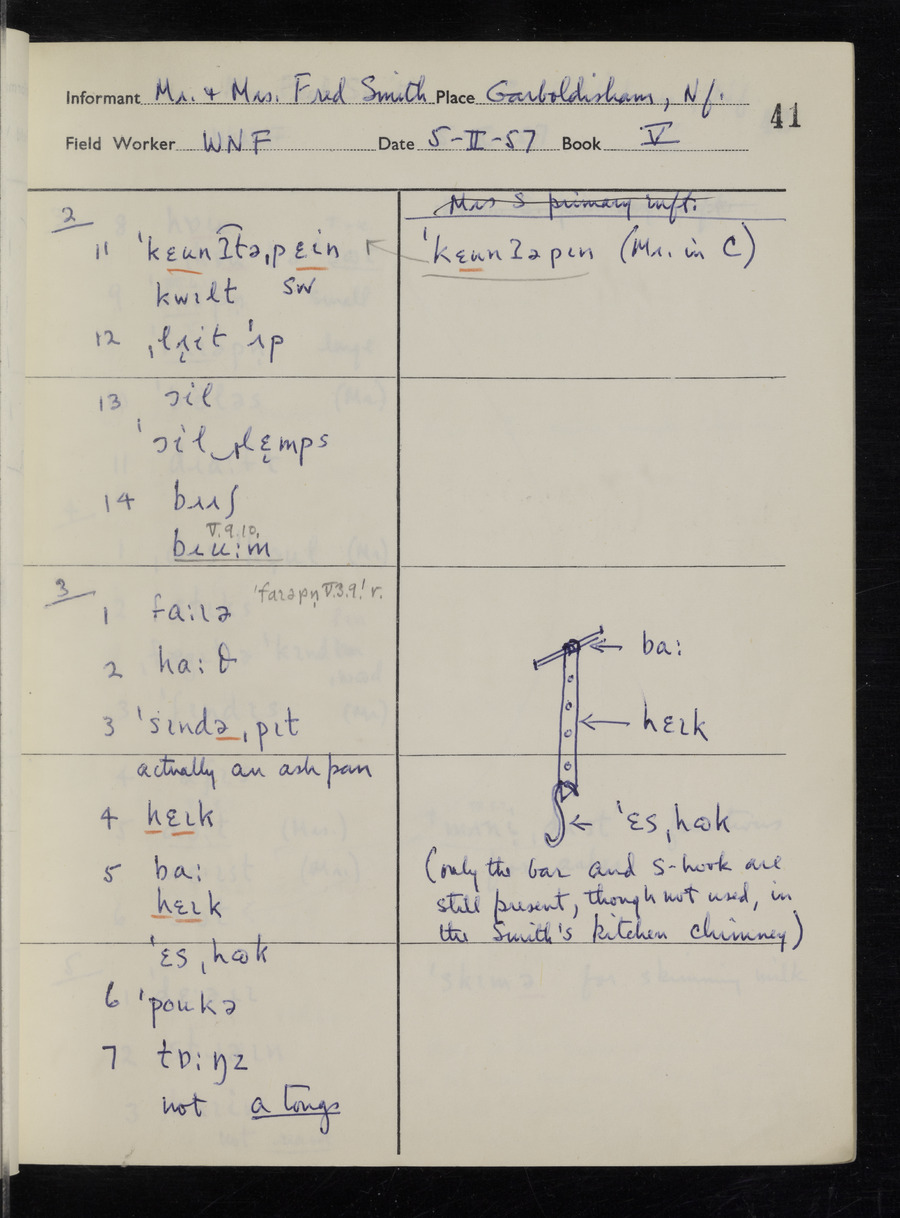 Informant Mr. + Mrs. Fred Smith Place Garboldisham, Nf.
41
Field Worker WNF Date 5-II-57 Book V
Mrs S primary inft.
2
11 ˈkɛun
kwɪlt SW
ˈkɛunɪəpɪn (Mr. in C)
12
13 ɔil
14 bɹɪʃ
V.9.10.
bɹuːm
3
ˈfaɪəpn̩ V.3.9.! r.
1 faːɪə
2 haːθ
3 ˈsɪndəˌpɪt
actually an ash pan
4 hɛɪk
5 baː
hɛɪk
ˈɛsˌhʊk
6 ˈpoukə
7 tɒːŋz
not a tongs
baː
hɛɪk
ˈɛsˌhʊk
(only the bar and S-hook are
still present, though not used, in
the Smith's kitchen chimney)